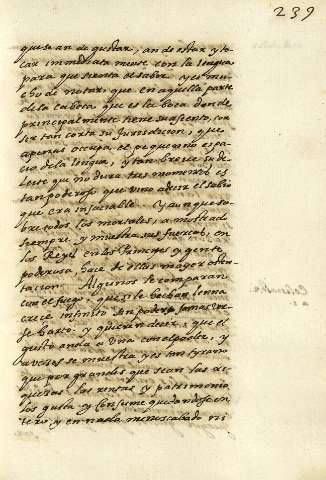 239
que se an de gustar, an de estar y to
car immediatamente con la lengua
para que sienta el sabor. y es mu
cho de notar, que en aquella parte
de la cabeça que es la boca donde
principalmente tiene su asiento, con
ser tan corta su Jurisdicion, que
apenas occupa el pequeño espa
cio de la lengua, y tan breve su de
leite que no dura tres momentos es
tan poderoso que vino a decir el sabio
que era insaciable. Y aunque so
bre todos los mortales, a mostrado
siempre, y muestra sus fuerças, en
los Reyes en los Principes y gente
poderosa, hace de ellas mayor osten
tacion. Algunos le comparan
con el fuego, que si le hechan lenna
crece infinito sin poder jamas verse
harto. y quieren decir, que el
gusto anda a una con el poder, y
a veces se muestra y es tan tyrano
que por grandes que sean las ri
queças las rentas y patrimonio
los gasta y consume quedandose en
tero, y en nada menoscabado ni